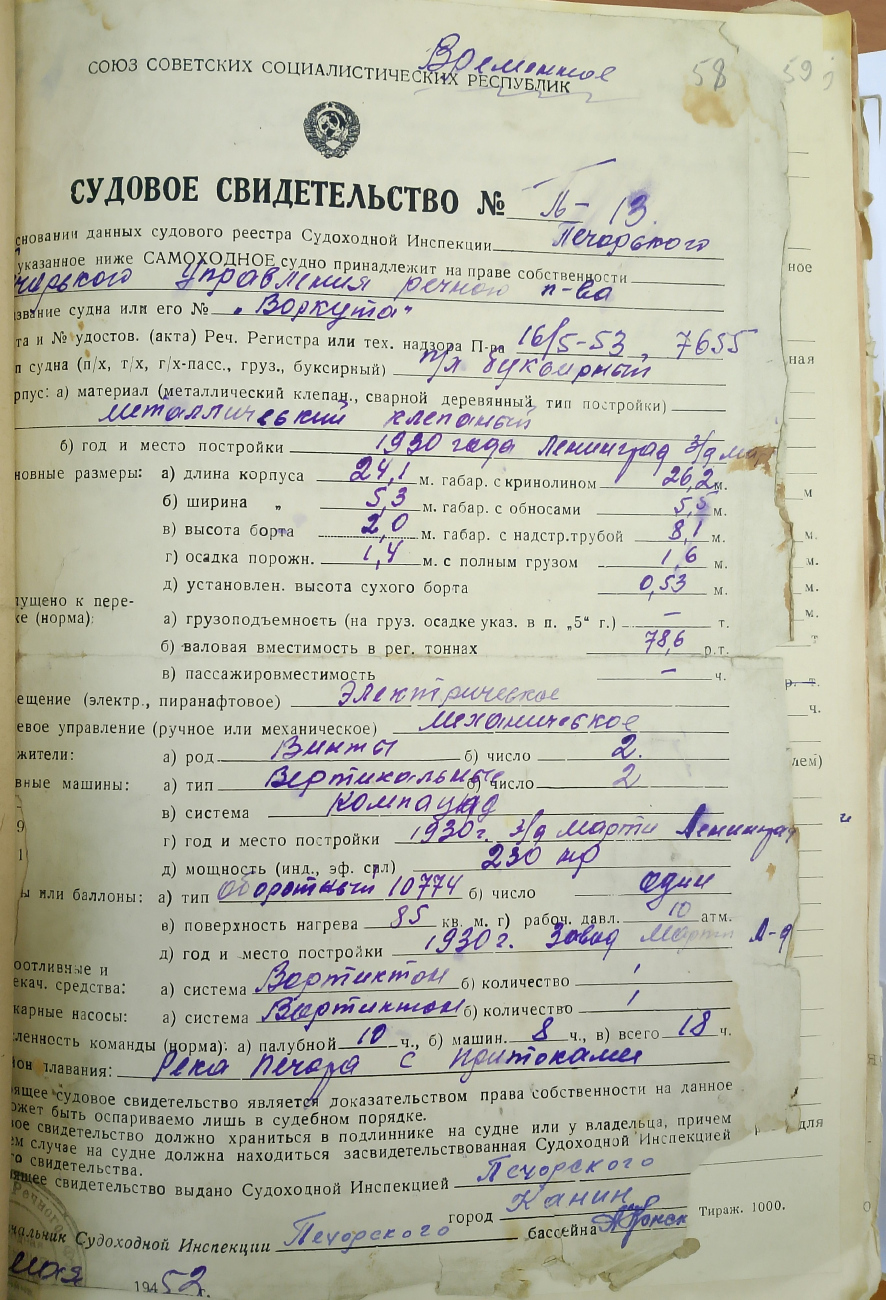 Временное
СОЮЗ СОВЕТСКИХ СОЦИАЛИСТИЧЕСКИХ РЕСПУБЛИК
58 59
СУДОВОЕ СВИДЕТЕЛЬСТВО № Л- 13.
сновании данных судового реестра Судоходной Инспекции Печорского
указанное ниже САМОХОДНОЕ судно принадлежит на праве собственности
чорского управления речного п-ва
звание судна или его № „Воркута"
та и № удостов. (акта) Реч. Регистра или тех. надзора П-ва 16/5-53, 7655
п судна (п/х, т/х, г/х-пасс., груз., буксирный) п/х буксирный
рпус: а) материал (металлический клепан., сварной деревянный, тип постройки)
металлический клепаный
б) год и место постройки 1930 года Ленинград з/д Мар
новные размеры: а) длина корпуса 24,1 м. габар. с кринолином 26,2 м.
б) ширина „ 5,3 м. габар. с обносами 5,5 м.
в) высота борта 2,0 м. габар. с надстр. трубой 8,1 м.
г) осадка порожн. 1,4 м. с полным грузом 1,6 м.
д) установлен. высота сухого борта 0,53 м.
пущено к пере-
ке (норма): а) грузоподъемность (на груз. осадке указ. в п. „5" г.) — т.
б) валовая вместимость в рег. тоннах 78,6 р.т.
в) пассажировместимость — ч.
ещение (электр., пиранафтовое) Электрическое
евое управление (ручное или механическое) механическое
жители: а) род Винты б) число 2.
вные машины: а) тип Вертикальные б) число 2
в) система Компаунд
г) год и место постройки 1930 г. з/д Марти Ленинград
д) мощность (инд., эф. сил) 230
ы или баллоны: а) тип Оборотный 10774 б) число один
в) поверхность нагрева 85 кв. м. г) рабоч. давл. 10 атм.
д) год и место постройки 1930 г. Завод Марти Л-д
оотливные и
екач. средства: а) система Вортинктон б) количество 1
карные насосы: а) система Вортинктон б) количество 1
сленность команды (норма): а) палубной 10 ч., б) машин. 8 ч., в) всего 18 ч.
йон плавания: Река Печора с притоками
ящее судовое свидетельство является доказательством права собственности на данное
ожет быть оспариваемо лишь в судебном порядке.
ое свидетельство должно храниться в подлиннике на судне или у владельца, причем
ем случае на судне должна находиться засвидетельствованная Судоходной Инспекцией
о свидетельства.
ящее свидетельство выдано Судоходной Инспекцией Печорского
город Канин
чальник Судоходной Инспекции Печорского бассейна
Тираж. 1000.
мая 1952 г.
ное
ная
м
м.
м.
м.
м.
т
р. т.
ч.
лем)
для